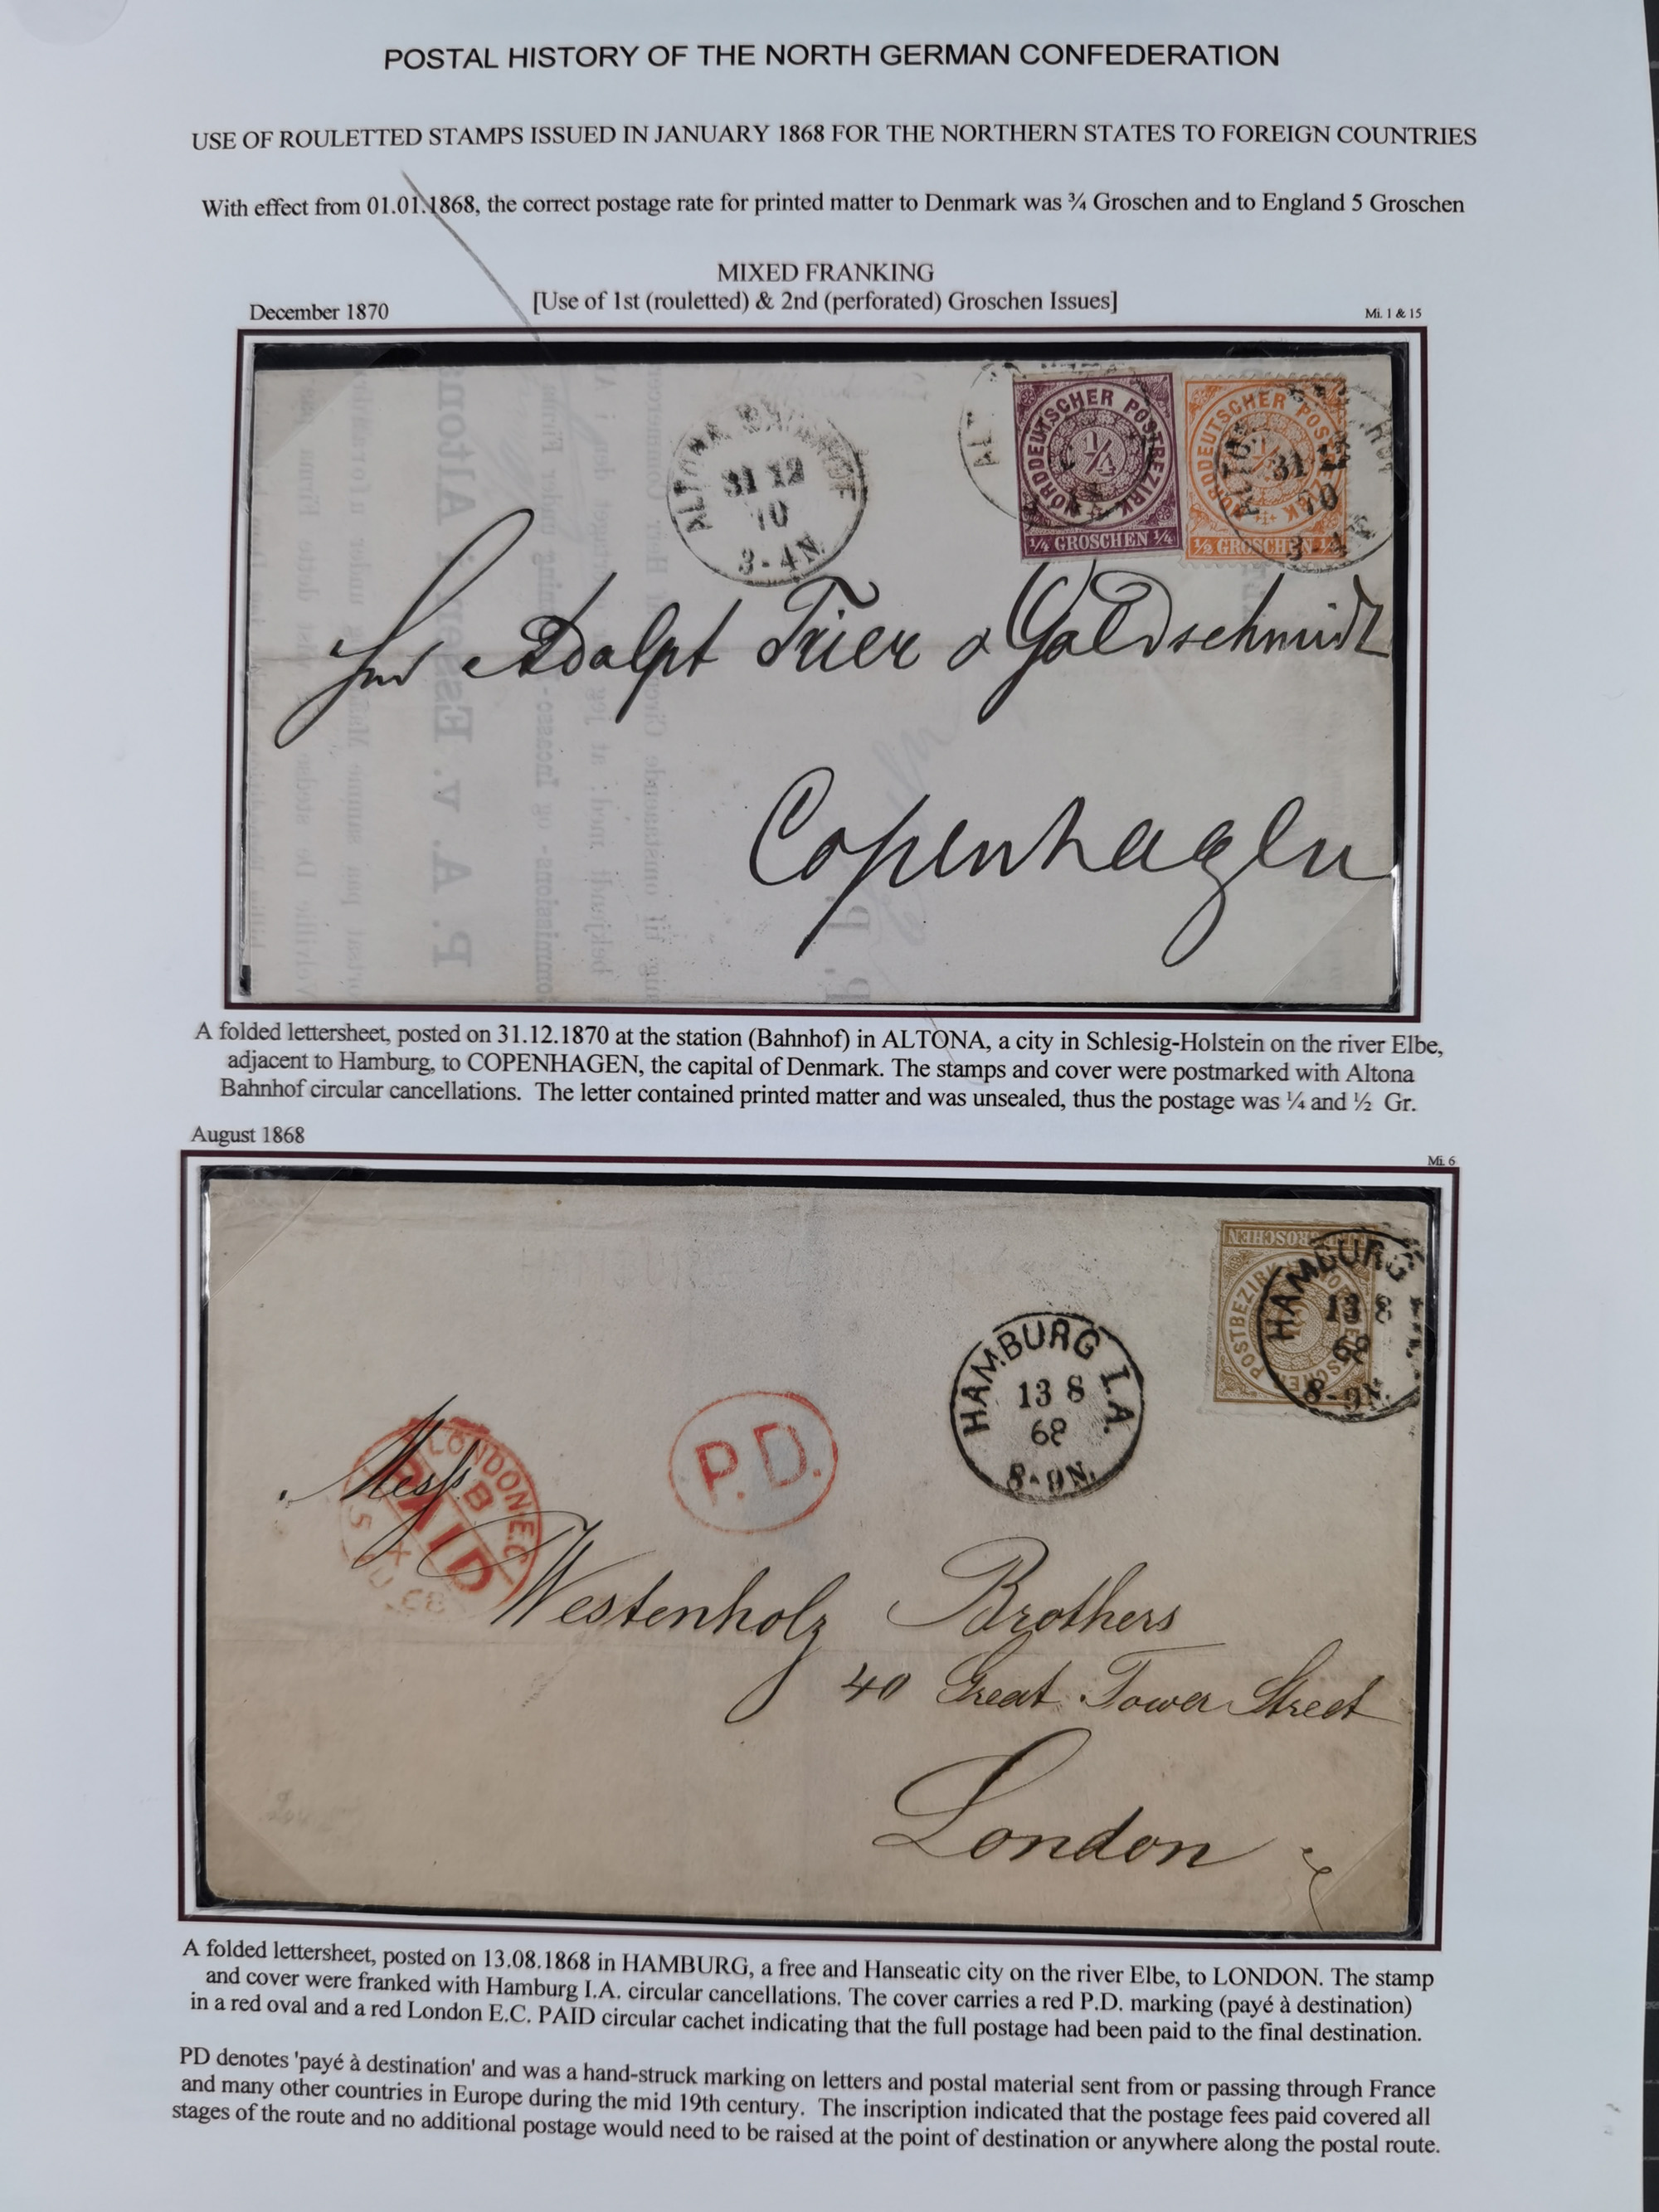 POSTAL HISTORY OF THE NORTH GERMAN CONFEDERATION
USE OF ROULETTED STAMPS ISSUED IN JANUARY 1868 FOR THE NORTHERN STATES TO FOREIGN COUNTRIES
With effect from 01.01.1868, the correct postage rate for printed matter to Denmark was ¾ Groschen and to England 5 Groschen
MIXED FRANKING
[Use of 1st (rouletted) & 2nd (perforated) Groschen Issues]
December 1870
Mi. 1 & 15
ALTONA BAHNHOF
31 12
70
3-4N.
NORDDEUTSCHER POSTBEZIRK
1/4
1/4 GROSCHEN 1/4
NORDDEUTSCHER POSTBEZIRK
1/2 GROSCHEN 1/2
ALTONA BAHNHOF
31 12
70
3-4N
Adolph Trier & Goldschmidt
Copenhagen
A folded lettersheet, posted on 31.12.1870 at the station (Bahnhof) in ALTONA, a city in Schlesig-Holstein on the river Elbe,
adjacent to Hamburg, to COPENHAGEN, the capital of Denmark. The stamps and cover were postmarked with Altona
Bahnhof circular cancellations. The letter contained printed matter and was unsealed, thus the postage was ¼ and ½ Gr.
August 1868
Mi. 6
GROSCHEN
POSTBEZIRK
HAMBURG
13 8
68
8-9N.
HAMBURG I.A.
13 8
68
8-9N.
P.D.
LONDON E.C.
PAID
68
Messrs
Westenholz Brothers
40 Great Tower Street
London
A folded lettersheet, posted on 13.08.1868 in HAMBURG, a free and Hanseatic city on the river Elbe, to LONDON. The stamp
and cover were franked with Hamburg I.A. circular cancellations. The cover carries a red P.D. marking (payé à destination)
in a red oval and a red London E.C. PAID circular cachet indicating that the full postage had been paid to the final destination.
PD denotes 'payé à destination' and was a hand-struck marking on letters and postal material sent from or passing through France
and many other countries in Europe during the mid 19th century. The inscription indicated that the postage fees paid covered all
stages of the route and no additional postage would need to be raised at the point of destination or anywhere along the postal route.